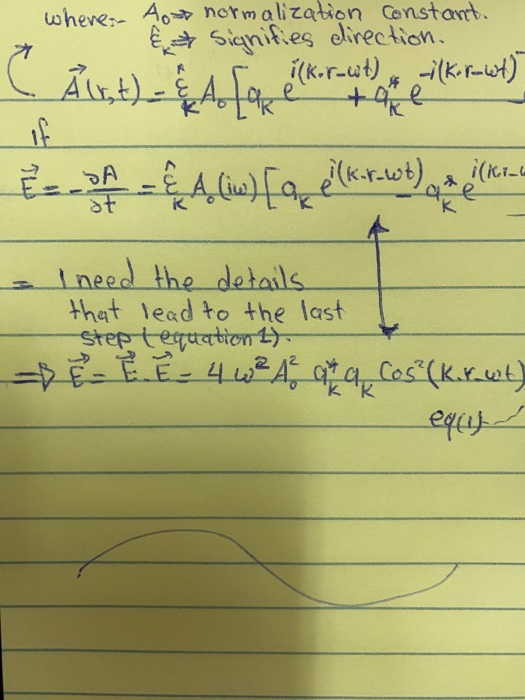 where:- A₀ ⇒ normalization constant.
ε̂ₖ ⇒ signifies direction.
A⃗(r,t) = ε̂ₖ A₀ [aₖ e^{i(k.r-ωt)} + a*ₖ e^{-i(k.r-ωt)}
if
E⃗ = -∂A/∂t = ε̂ₖ A₀ (iω) [aₖ e^{i(k.r-ωt)} - a*ₖ e^{i(k.r-ω
= I need the details
that lead to the last
step (equation 1).
⇒ E⃗ = E⃗.E⃗ = 4ω² A₀² a*ₖ aₖ Cos²(k.r-ωt)
eq(1)